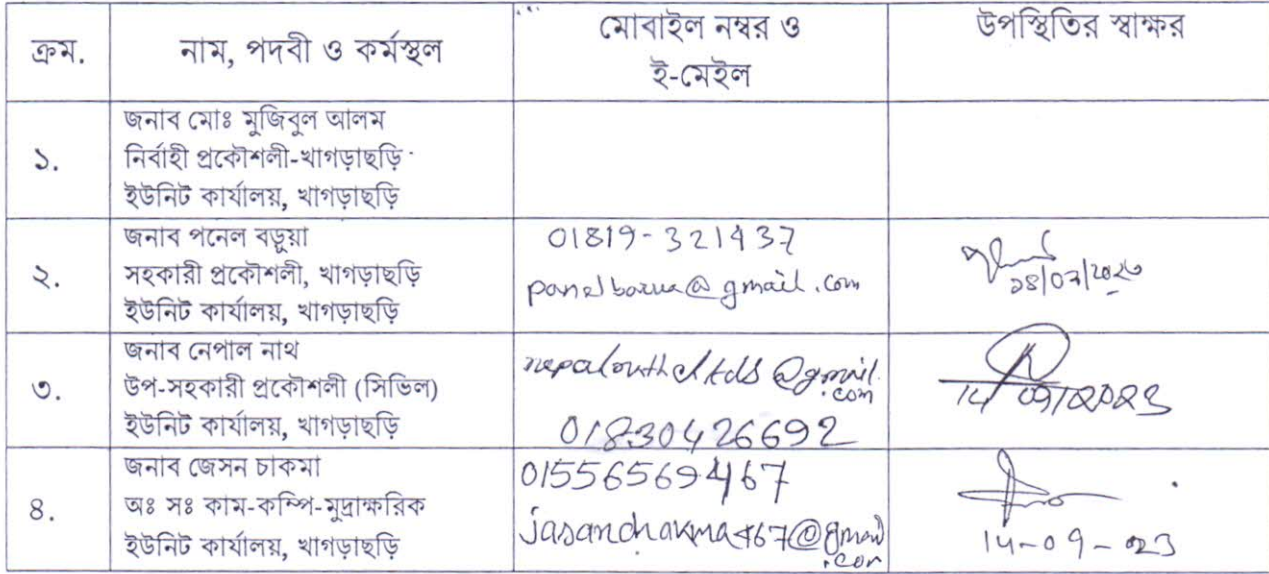 ক্রম. নাম, পদবী ও কর্মস্থল মোবাইল নম্বর ও ই-মেইল উপস্থিতির স্বাক্ষর
১.
জনাব মোঃ মুজিবুল আলম
নির্বাহী প্রকৌশলী-খাগড়াছড়ি
ইউনিট কার্যালয়, খাগড়াছড়ি
২.
জনাব পনেল বড়ুয়া
সহকারী প্রকৌশলী, খাগড়াছড়ি
ইউনিট কার্যালয়, খাগড়াছড়ি
01819-321437
panelbarua@gmail.com
৩.
জনাব নেপাল নাথ
উপ-সহকারী প্রকৌশলী (সিভিল)
ইউনিট কার্যালয়, খাগড়াছড়ি
@gmail.com
01830426692
14/09/2023
৪.
জনাব জেসন চাকমা
অঃ সঃ কাম-কম্পি-মুদ্রাক্ষরিক
ইউনিট কার্যালয়, খাগড়াছড়ি
015565694467
jasanchakma467@gmail.com
14-09-23